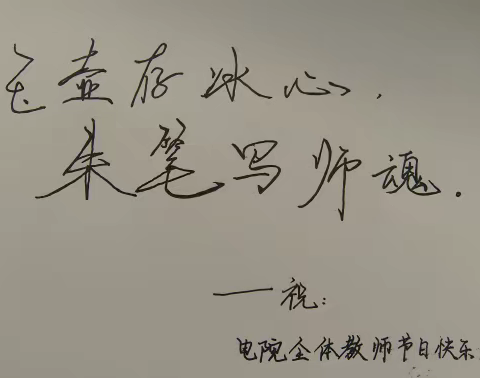 玉壶存冰心,
朱笔写师魂.
——祝:
电院全体教师节日快乐